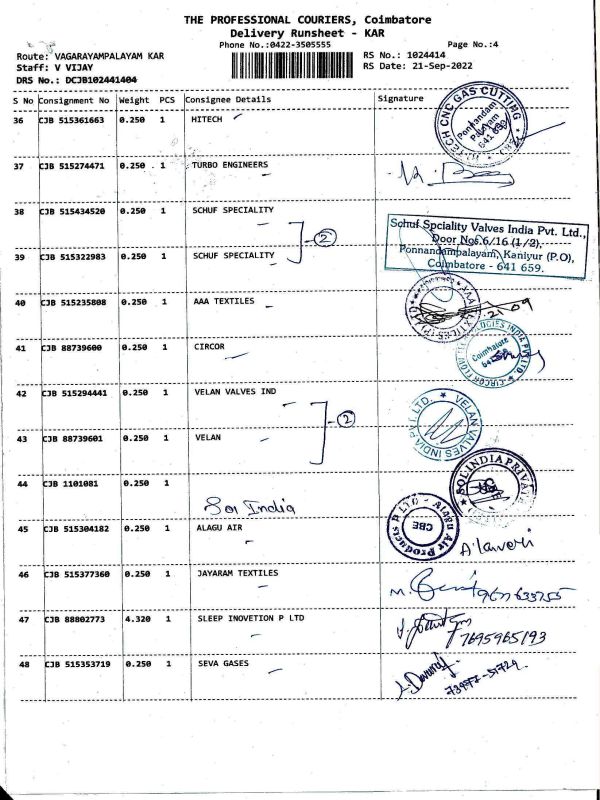 THE PROFESSIONAL COURIERS, Coimbatore
Delivery Runsheet - KAR
Phone No.:0422-3505555 Page No.:4
Route: VAGARAYAMPALAYAM KAR RS No.: 1024414
Staff: V VIJAY RS Date: 21-Sep-2022
DRS No.: DCJB102441404
S No Consignment No Weight PCS Consignee Details Signature
36 CJB 515361663 0.250 1 HITECH
TECH CNC GAS CUTTING
Ponnandam
Palayam
641 659
37 CJB 515274471 0.250 1 TURBO ENGINEERS
38 CJB 515434520 0.250 1 SCHUF SPECIALITY
2
Schuf Spciality Valves India Pvt. Ltd.,
Door Nos.6/16 (1/2),
Ponnandampalayam, Kaniyur (P.O),
Coimbatore - 641 659.
39 CJB 515322983 0.250 1 SCHUF SPECIALITY
40 CJB 515235808 0.250 1 AAA TEXTILES
21-09
41 CJB 88739600 0.250 1 CIRCOR
Coimbatore
42 CJB 515294441 0.250 1 VELAN VALVES IND
2
VELAN VALVES INDIA PVT. LTD.
43 CJB 88739601 0.250 1 VELAN
44 CJB 1101081 0.250 1
Sol India
SOL INDIA PRIVATE
45 CJB 515304182 0.250 1 ALAGU AIR
Alagu Air Products P LTD
CBE
46 CJB 515377360 0.250 1 JAYARAM TEXTILES
47 CJB 88802773 4.320 1 SLEEP INOVETION P LTD
7695965193
48 CJB 515353719 0.250 1 SEVA GASES
73977-51729